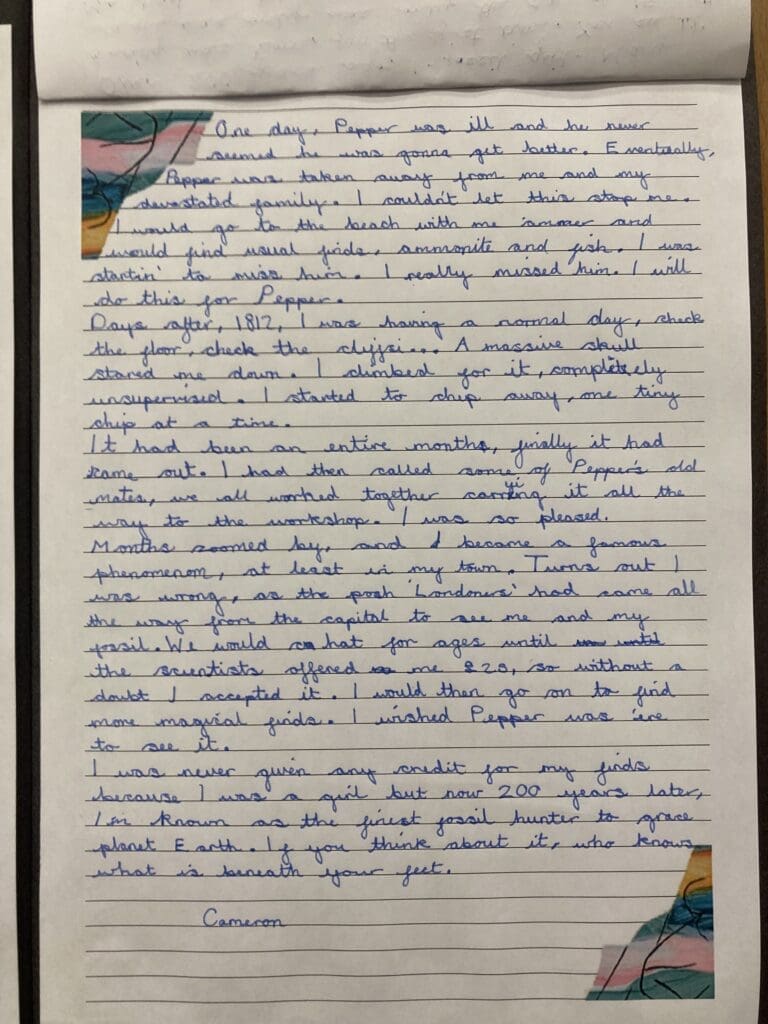 One day, Pepper was ill and he never
seemed he was gonna get better. Eventually,
Pepper was taken away from me and my
devastated family. I couldn't let this stop me.
I would go to the beach with me 'ammer and
would find usual finds, ammonite and fish. I was
startin' to miss him. I really missed him. I will
do this for Pepper.
Days after, 1812, I was having a normal day, check
the floor, check the cliffs... A massive skull
stared me down. I climbed for it, completely
unsupervised. I started to chip away, one tiny
chip at a time.
It had been an entire month, finally it had
came out. I had then called some of Pepper's old
mates, we all worked together carrying it all the
way to the workshop. I was so pleased.
Months zoomed by, and I became a famous
phenomenon, at least in my town. Turns out I
was wrong, as the posh 'Londoners' had came all
the way from the capital to see me and my
fossil. We would chat for ages until
the scientists offered me £25, so without a
doubt I accepted it. I would then go on to find
more magical finds. I wished Pepper was 'ere
to see it.
I was never given any credit for my finds
because I was a girl but now 200 years later,
I'm known as the finest fossil hunter to grace
planet Earth. If you think about it, who knows
what is beneath your feet.
Cameron